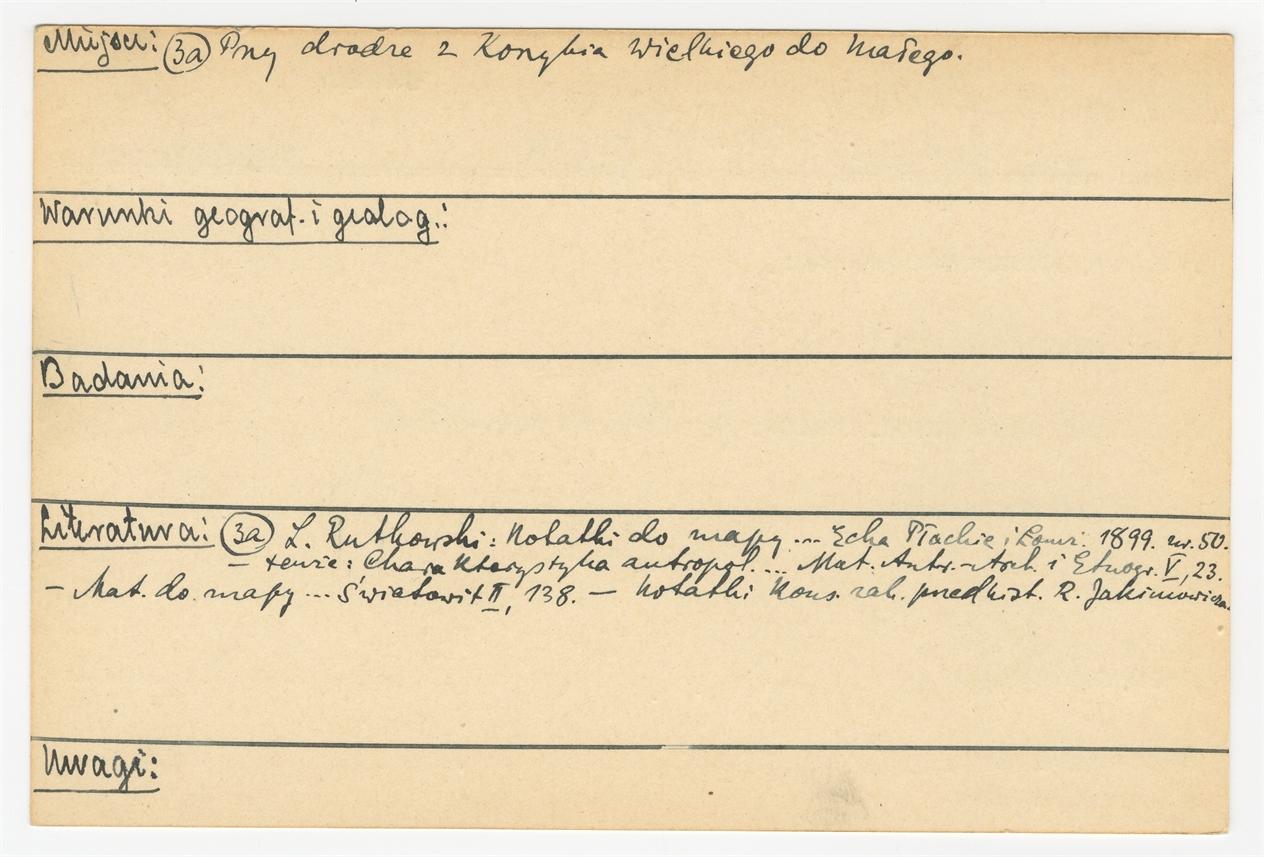 Miejsce: (3a) Przy drodze z Konybia Wielkiego do Małego.
Warunki geograf. i geolog.:
Badania:
Literatura: (3a) L. Rutkowski: Notatki do mapy ... Echa Płockie i Łomż. 1899. nr. 50.
– tenże: Charakterystyka antropol. ... Mat. Antr.-Arch. i Etnogr. V, 23.
– Mat. do mapy ... Światowit II, 138. – Notatki Kons. zab. przedhist. R. Jakimowicza.
Uwagi: